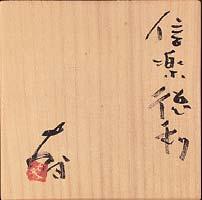 信楽徳利